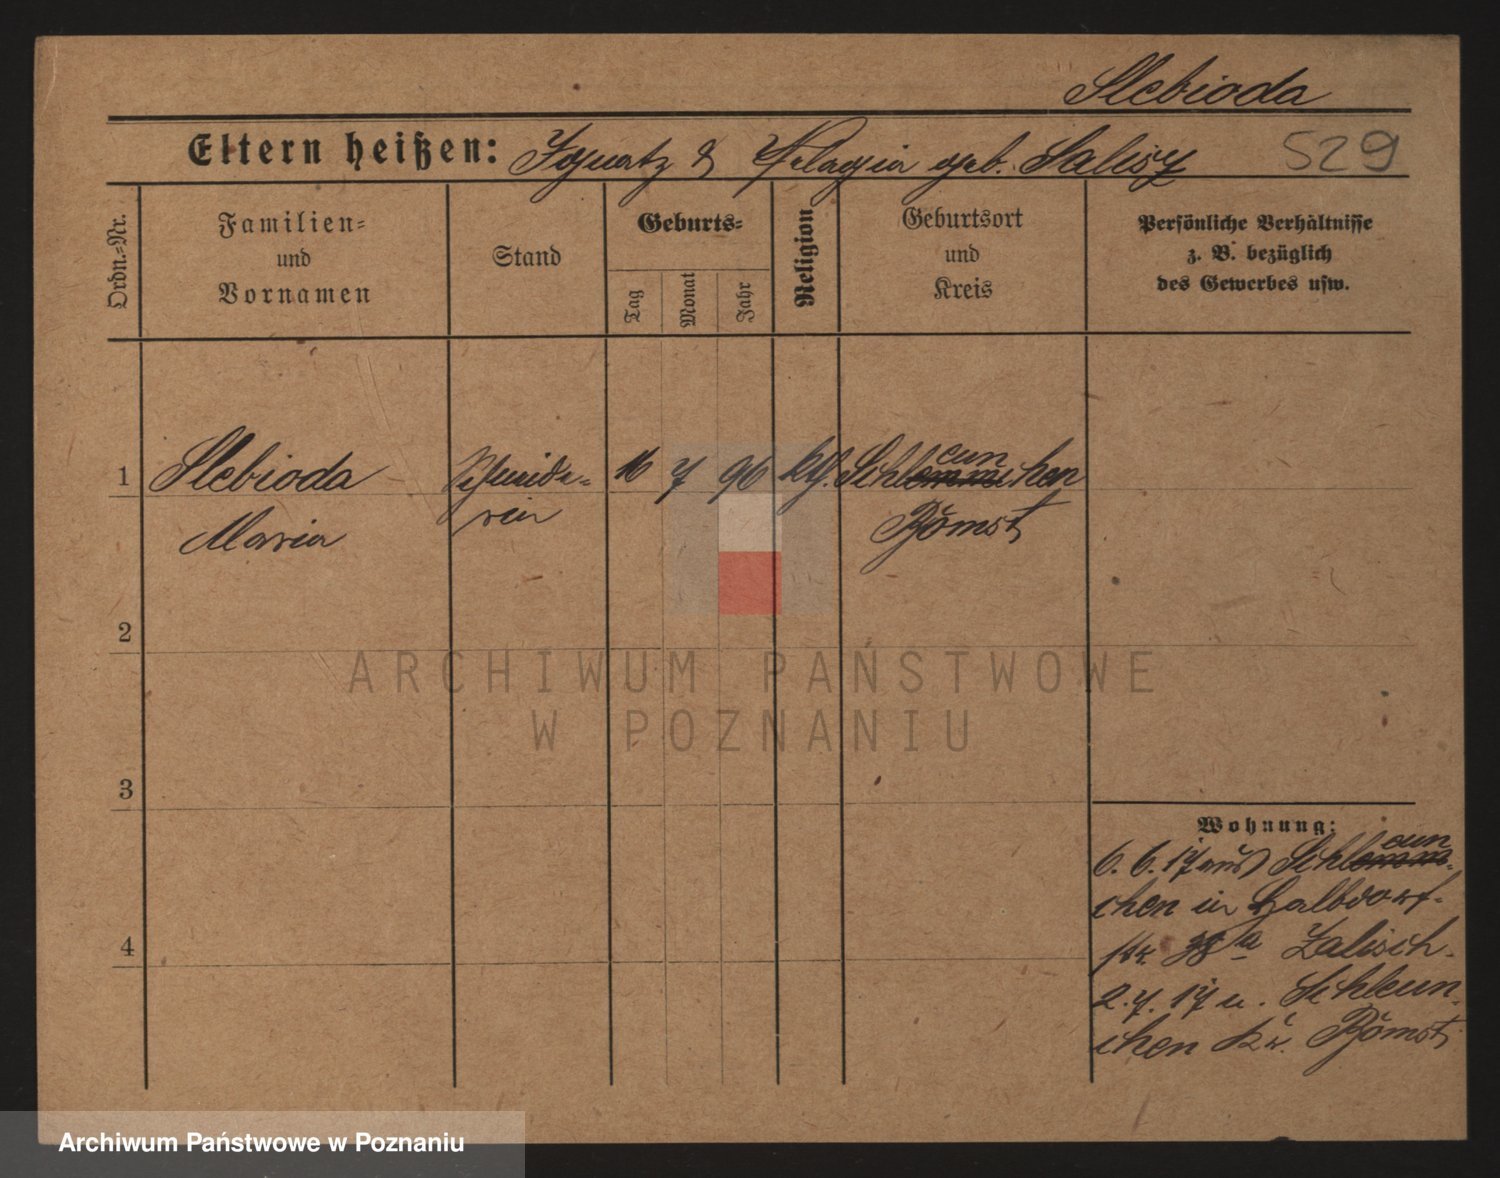 Slebioda
Eltern heißen: Ignatz & Pelagia geb. Salisz
529
Ordn.-Nr.
Familien-
und
Vornamen
Stand
Geburts-
Tag
Monat
Jahr
Religion
Geburtsort
und
Kreis
Persönliche Verhältnisse
z. B. bezüglich
des Gewerbes usw.
1
Slebioda
Maria
Schneide-
rin
16
7
96
kth.
Schleunchen
Bomst
2
3
4
Wohnung:
6. 6. 17 aus Schleun-
chen in
Zalisch
2. 7. 17 n. Schleun-
chen Kr. Bomst
ARCHIWUM PAŃSTWOWE
W POZNANIU
Archiwum Państwowe w Poznaniu